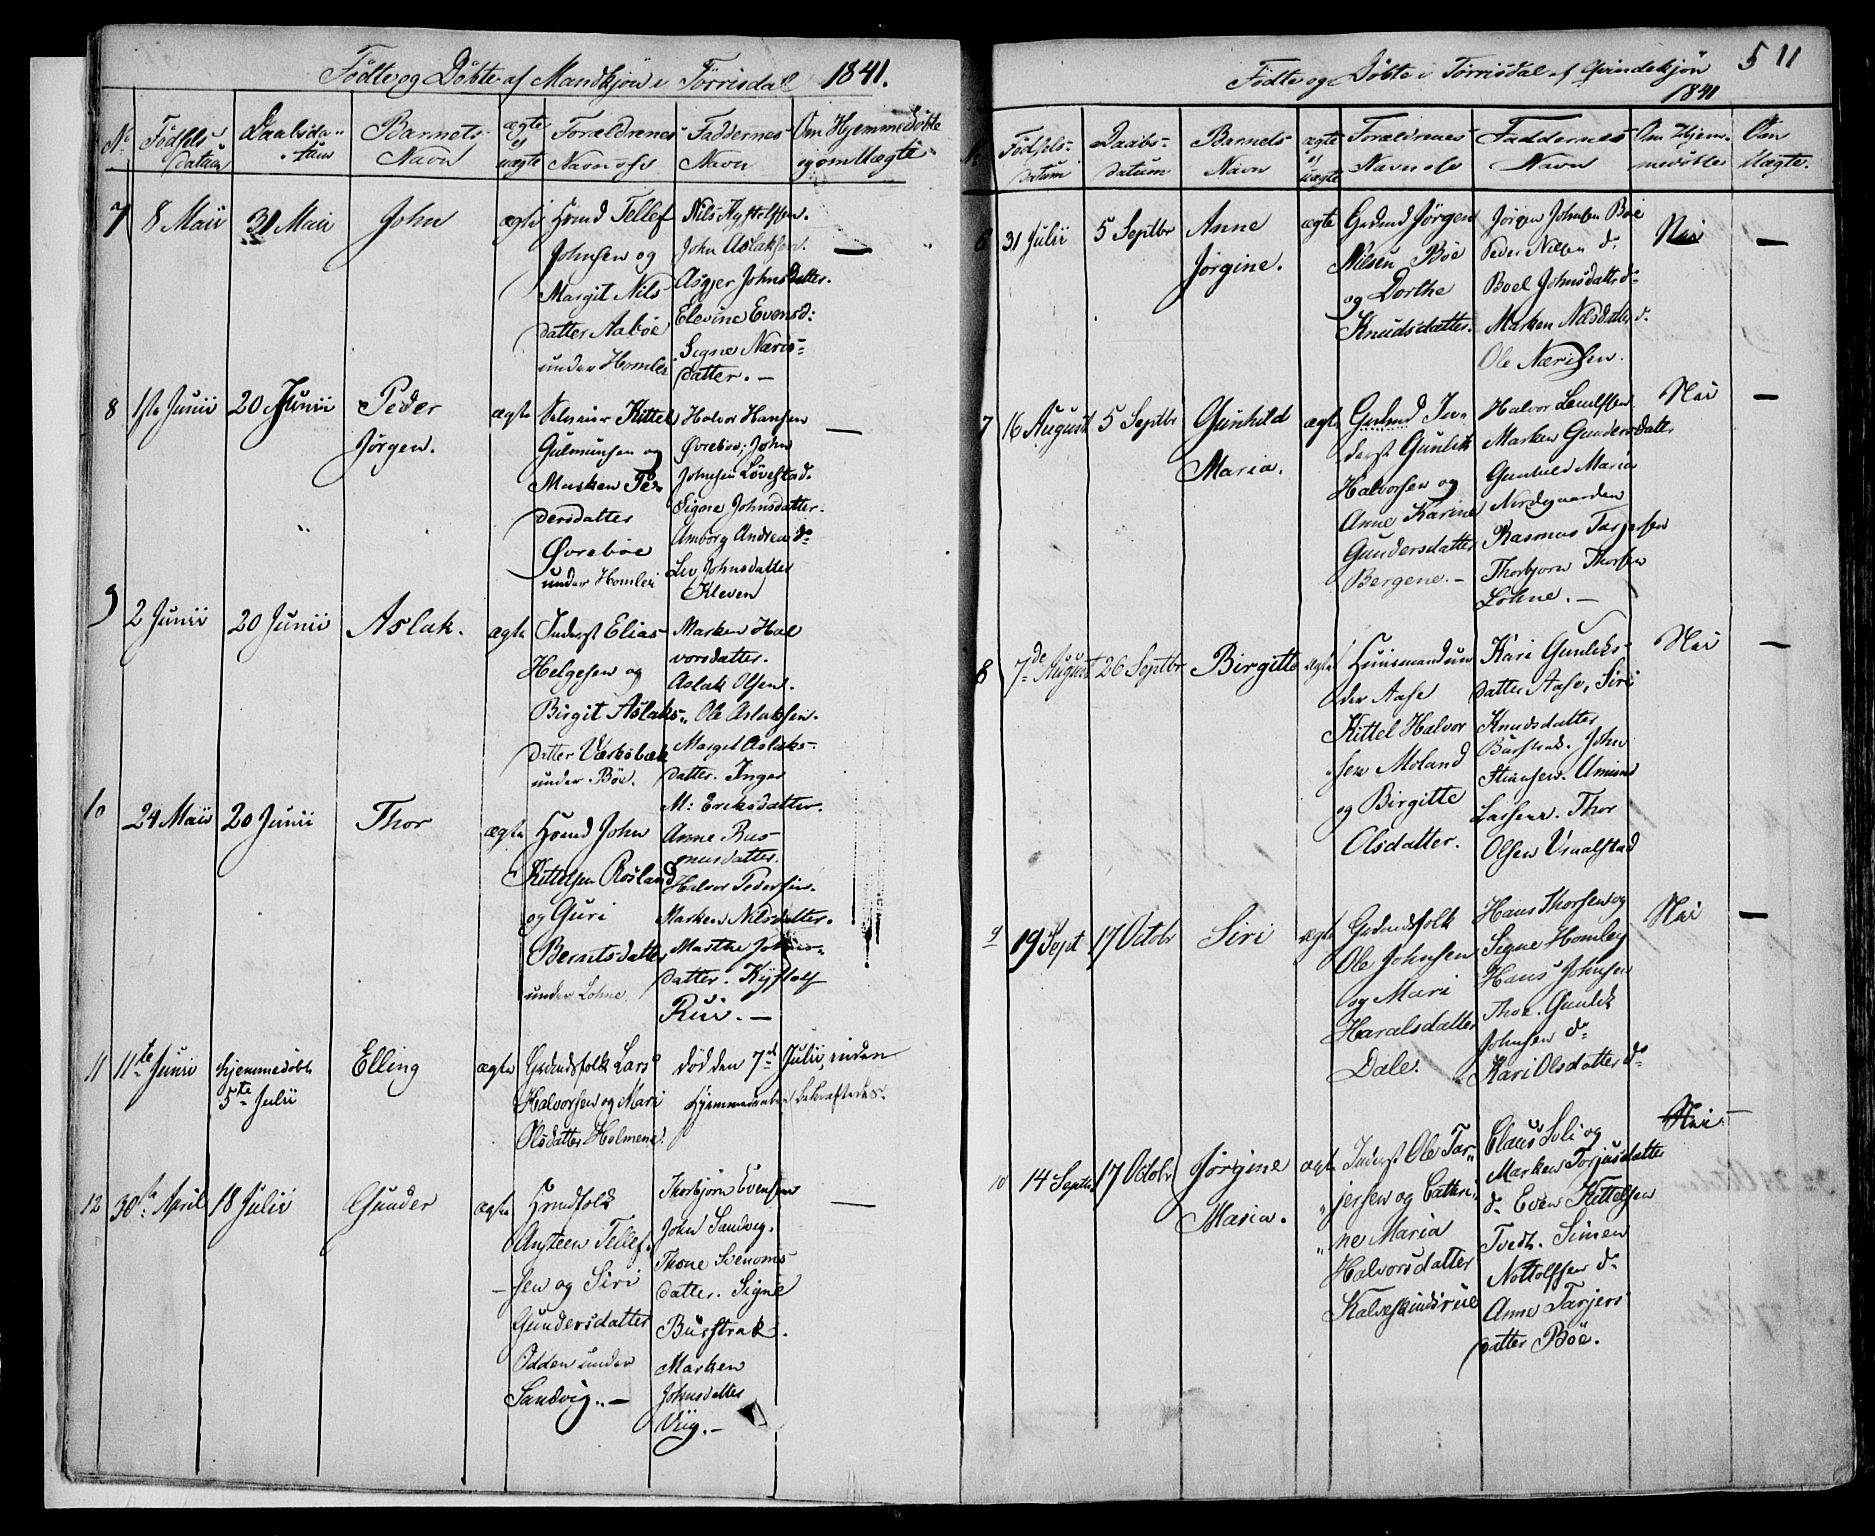 Fødte og Döbte af Mandkjön i Torrisdal 1841.
No
Födsels datum
Daabsdatum
Barnets Navn
ægte el uægte
Forældrenes Navn ofv
Faddernes Navn
Om Hjemmedöbte og om Uægte
7
8 Maii
31 Maii
John
ægte
Johnsen og
Margit Nils
datter Aaboe
under Homlei
Nils Kystolfsen.
John Aslaksen.
Asgjer Johnsdatter.
Elevine Evensd:
Signe Næris-
datter. —
—
8
1ste Junii
20 Junii
Peder
Jørgen.
ægte
Kittel
Gulmunsen og
Marken Pe-
dersdatter
Øvreböe
under Homlei
Halvor Hansen
Øvreboe, John
Johnsen Løvestad.
Signe Johnsdatter.
Amborg Andrea do
Liv Johnsdatter
Kleven
—
9
2 Junii
20 Junii
Aslak.
ægte
Inderst Elias
Helgesen og
Birgit Aslaks-
datter Værksbæk
under Böe.
Marken Hal
vorsdatter.
Aslak Olsen.
Ole Aslaksen.
Margit Aslaks-
datter. Inger
M: Eriksdatter.
10
24 Maii
20 Junii
Thor
ægte
Hsmd John
Kittelsen Rosland
og Guri
Berntsdatter
under Lohne
Anne Ras
musdatter.
Halvor Pedersen.
Marken Nilsdatter.
Marthe Johns-
datter. Kystolf
Rui. —
11
11te Junii
hjemmedöbt
5te Julii
Elling
ægte
Grdmdsfolk Lars
Halvorsen og Mari
Olsdatter Holmene.
död den 7de Julii, inden
Hjemmedaaben bekræftedes.
12
30te April
18 Julii
Gunder
ægte
Hsmdfolk
Ansteen Tellef-
sen og Siri
Gundersdatter
Odden under
Sandvig. —
Thorbjörn Evensen
John Sandvig.
Thone Svenoms-
datter. Signe
Busstrak.
Marken
Johnsdatter
Viig. —
—
Fødte og Döbte i Torrisdal af Qvindekjön
1841
5 11
Födsels-datum
Daabs-datum
Barnets Navn
ægte el uægte
Forældrenes Navn ofv
Faddernes Navn
Om Hjem-medöbte
Om Uægte.
6
31 Julii
5 Septbr
Anne
Jørgine.
ægte
Grdmd Jørgen
Nilsen Böe
og Dorthe
Knudsdatter.
Jørgen Johnsen Böe
Peder Nilsen do.
Boel Johnsdatter do
Marken Nilsdatter do.
Ole Nærisen.
Nei
—
7
16 August
5 Septbr
Gunhild
Maria.
ægte
Grdmd In-
derst Gunlek
Halvorsen og
Anne Karine
Gundersdatter
Bergene. —
Halvor
Marken Gundersdatter
Gunhild Maria
Nordgaarden
Rasmus Tarjersen
Thorbjørn Thorsen
Lohne. —
Nei
—
8
7de August
26 Septbr
Birgitte
ægte
Huusmand un
der Aase
Kittel Halvor
sen Moland
og Birgitte
Olsdatter.
Kari Gunleks-
datter Aase, Siri
Knudsdatter
Busstrak. John
Steensen. Amund
Larsen. Thor
Olsen Vraalstad
Nei
—
9
19 Sept
17 Octobr
Siri
ægte
Grdmdsfolk
Ole Johnsen
og Mari
Haralsdatter
Dale.
Hans Thorsen og
Signe Homley
Hans Johnsen
Thor. Gunlek
Johnsen do
Kari Olsdatter do
Nei
—
10
14 Septbr
17 Octobr
Jørgine
Maria.
ægte
Inderst Ole Tar-
jersen og Cathri-
ne Maria
Halvorsdatter
Kalveskindsrue
Claus Soli og
Marken Torjusdatter
do Even Kittelsen
Tvedt. Simen
Nottolfsen do
Anne Tarjers
datter Böe.
Nei —